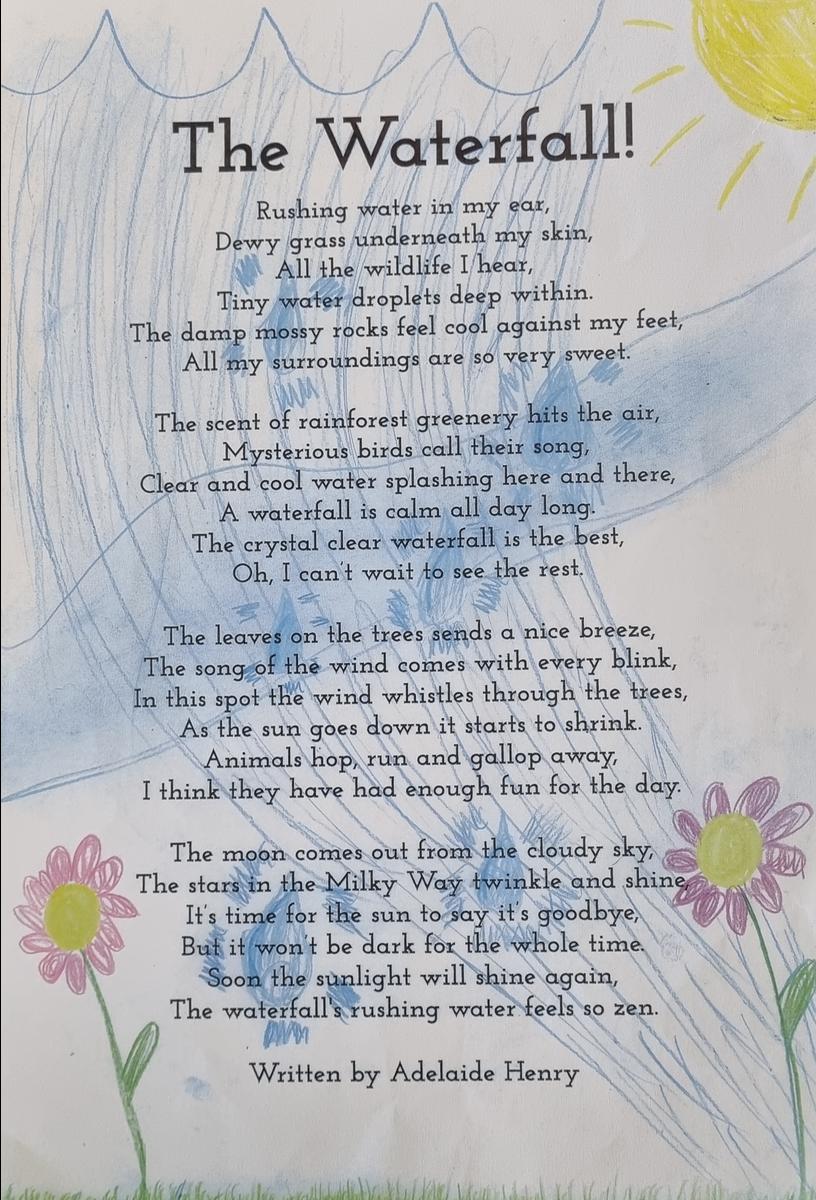 The Waterfall!
Rushing water in my ear,
Dewy grass underneath my skin,
All the wildlife I hear,
Tiny water droplets deep within.
The damp mossy rocks feel cool against my feet,
All my surroundings are so very sweet.
The scent of rainforest greenery hits the air,
Mysterious birds call their song,
Clear and cool water splashing here and there,
A waterfall is calm all day long.
The crystal clear waterfall is the best,
Oh, I can't wait to see the rest.
The leaves on the trees sends a nice breeze,
The song of the wind comes with every blink,
In this spot the wind whistles through the trees,
As the sun goes down it starts to shrink.
Animals hop, run and gallop away,
I think they have had enough fun for the day.
The moon comes out from the cloudy sky,
The stars in the Milky Way twinkle and shine,
It's time for the sun to say it's goodbye,
But it won't be dark for the whole time.
Soon the sunlight will shine again,
The waterfall's rushing water feels so zen.
Written by Adelaide Henry